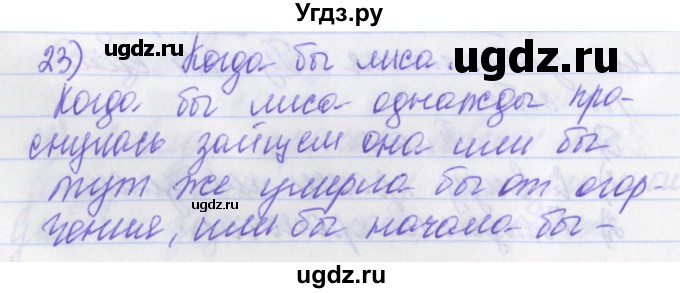 Угдз.ру
23) Когда бы лиса.
ugdz.ru
ugdz.ru
Когда бы лиса однажды про-
снулась зайцем она или бы
тут же умерла бы от огор-
ugdz.ru
чения, или бы начала бы -
ugdz.ru